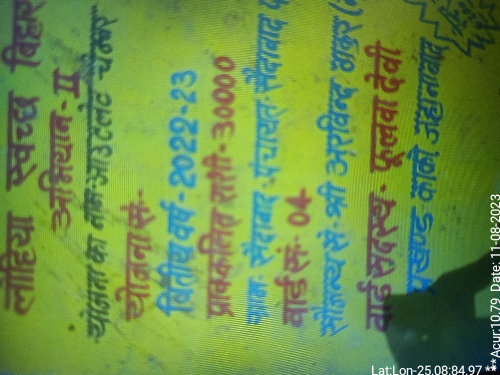 लोहिया स्वच्छ बिहार
अभियान - II
योजना का नाम:-आउटलेट चेम्बर
योजना सं:-
वितीय वर्ष - 2022-23
प्राक्कलित राशी - 30000
ग्राम:- सैदाबाद पंचायत:- सैदाबाद
वार्ड सं:- 04
सौजन्य से:- श्री अरविन्द ठाकुर
वार्ड सदस्य - फूलवा देवी
प्रखण्ड काको जहानाबाद
Lat:Lon-25.08:84.97 **Acur:10.79 Date: 11-08-2023